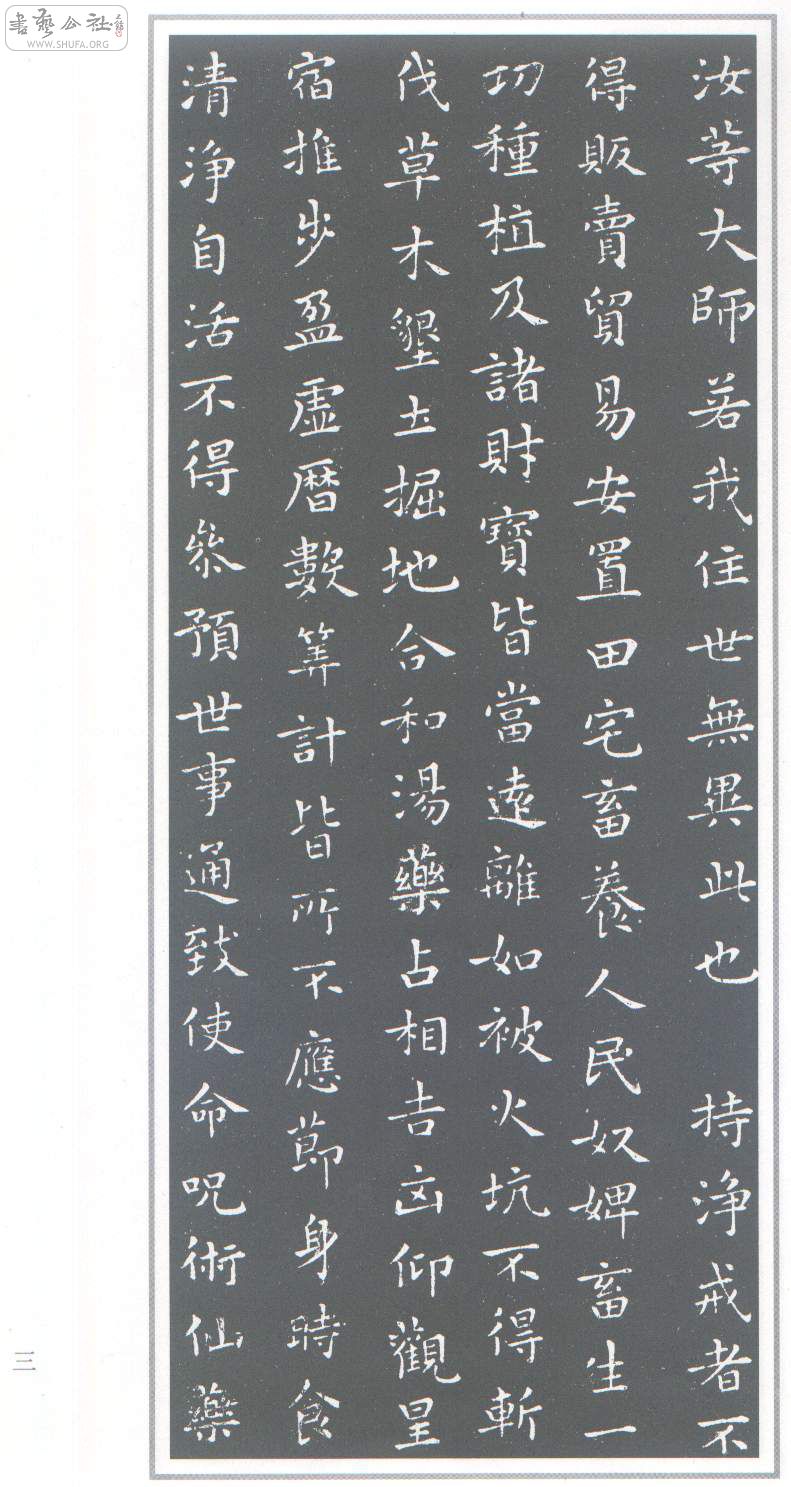 書藝公社
WWW.SHUFA.ORG
汝等大師若我住世無異此也　持淨戒者不
得販賣貿易安置田宅畜養人民奴婢畜生一
切種植及諸財寶皆當遠離如被火坑不得斬
伐草木墾土掘地合和湯藥占相吉凶仰觀星
宿推步盈虛曆數筭計皆所不應節身時食
清淨自活不得參預世事通致使命呪術仙藥
三